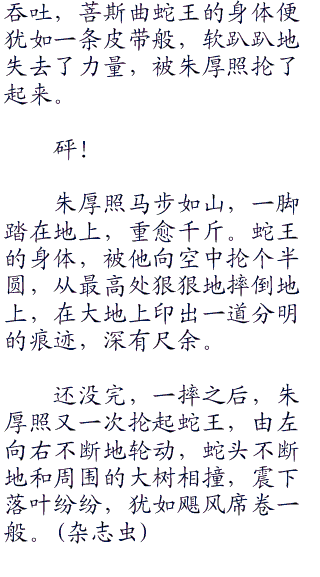 吞吐，菩斯曲蛇王的身体便
犹如一条皮带般，软趴趴地
失去了力量，被朱厚照抡了
起来。
砰！
朱厚照马步如山，一脚
踏在地上，重愈千斤。蛇王
的身体，被他向空中抡个半
圆，从最高处狠狠地摔倒地
上，在大地上印出一道分明
的痕迹，深有尺余。
还没完，一摔之后，朱
厚照又一次抡起蛇王，由左
向右不断地轮动，蛇头不断
地和周围的大树相撞，震下
落叶纷纷，犹如飓风席卷一
般。(杂志虫)